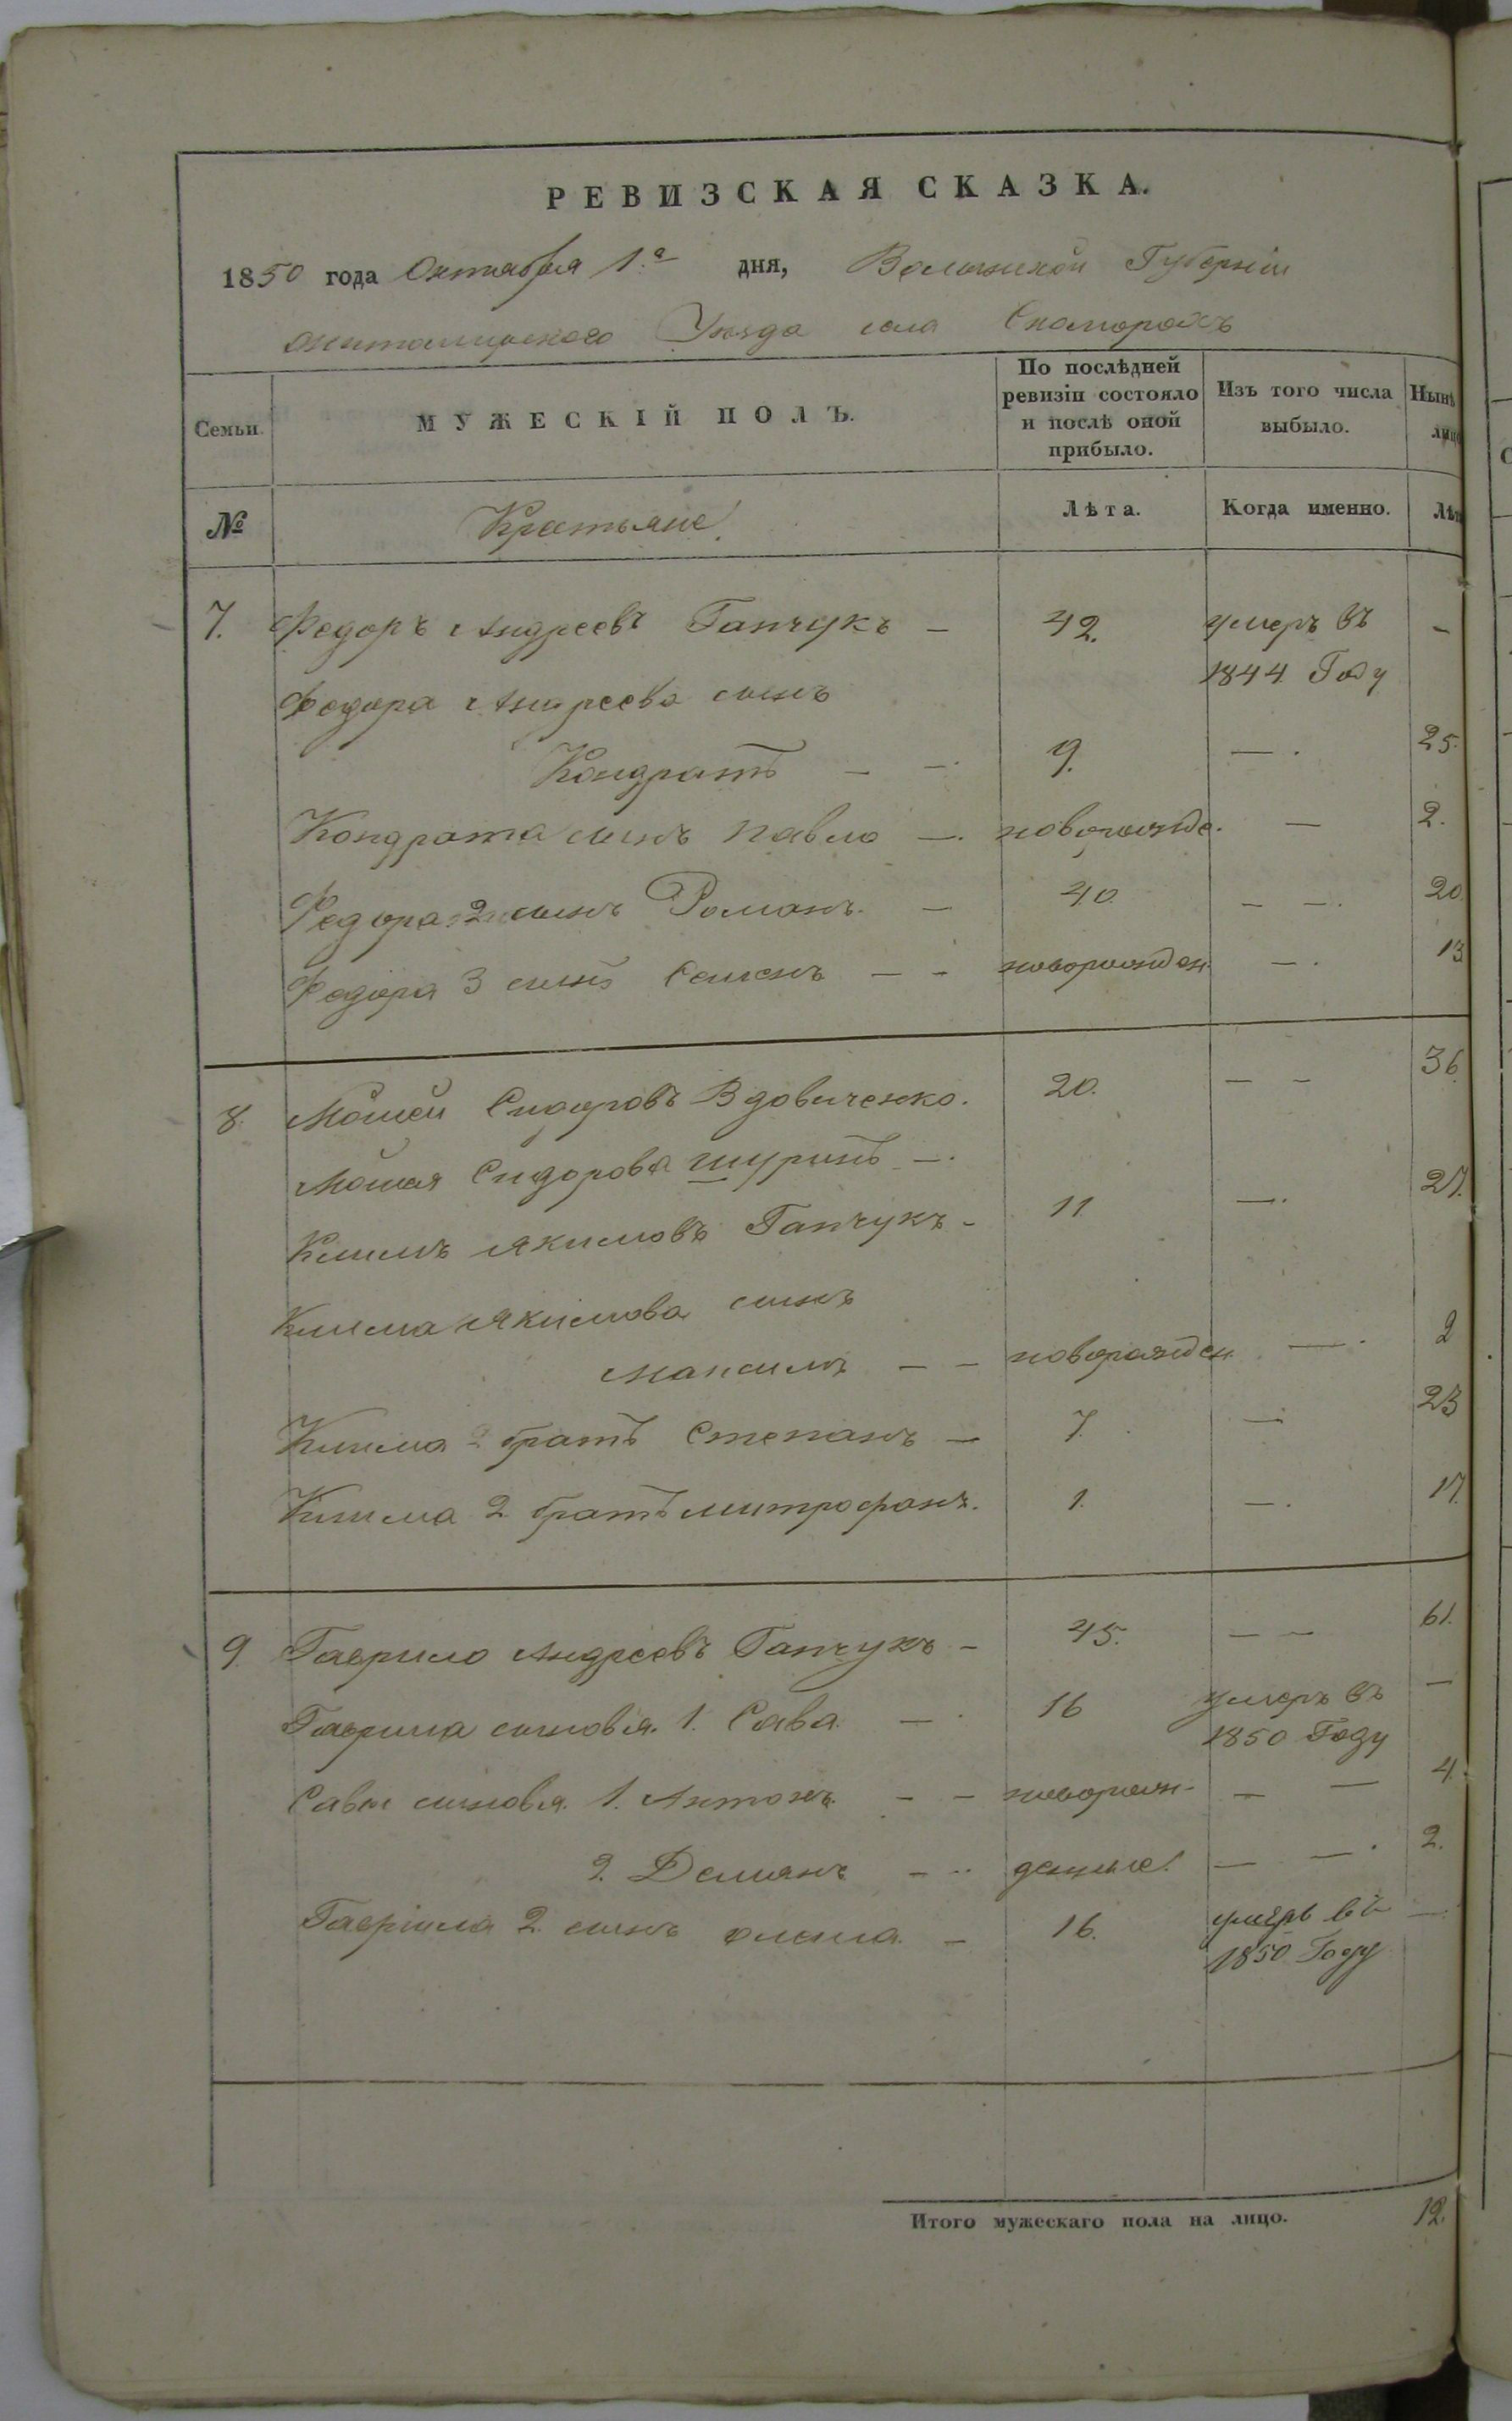 РЕВИЗСКАЯ СКАЗКА.
1850 года Октября 1.го дня, Волынской Губерніи
житомирского Уѣзда села Скоморохъ
Семьи. МУЖЕСКІЙ ПОЛЪ. По послѣдней ревизіи состояло и послѣ оной прибыло. Изъ того числа выбыло. Нынѣ лицо
№ Крестьяне. Лѣта. Когда именно. Лѣт
7. Федоръ Андреевъ Гапчукъ — 42. умеръ въ —
1844 Году
Федора Андреева сынъ
Кондратъ — — 9. — . 25.
Кондрата сынъ Павло — . новорожде. — 2.
Федора 2 сынъ Романъ. — 40. — — . 20.
Федора 3 сынъ Семенъ — — новорожден. — . 13
8. Мойсей Сидоровъ Вдовиченко. 20. — — 36
Мойсея Сидорова шуринъ — .
Климъ Якимовъ Гапчукъ — 11 — . 27.
Клима Якимова сынъ
Максимъ — — новорожден. — . 2
Клима 2 братъ Степанъ — 7. — 23
Клима 2 братъ митрофанъ. 1. — . 17.
9. Гаврило Андреевъ Гапчукъ — 45. — — 61.
Гаврила сыновя. 1. Сава. — . 16 умеръ въ —
1850 Году
Савы сыновя. 1. Антонъ. — — новорож- — — 4.
2. Демянъ — — денные. — — . 2.
Гавріила 2 сынъ — 16. умеръ въ —
1850 Году
Итого мужескаго пола на лицо. 12.